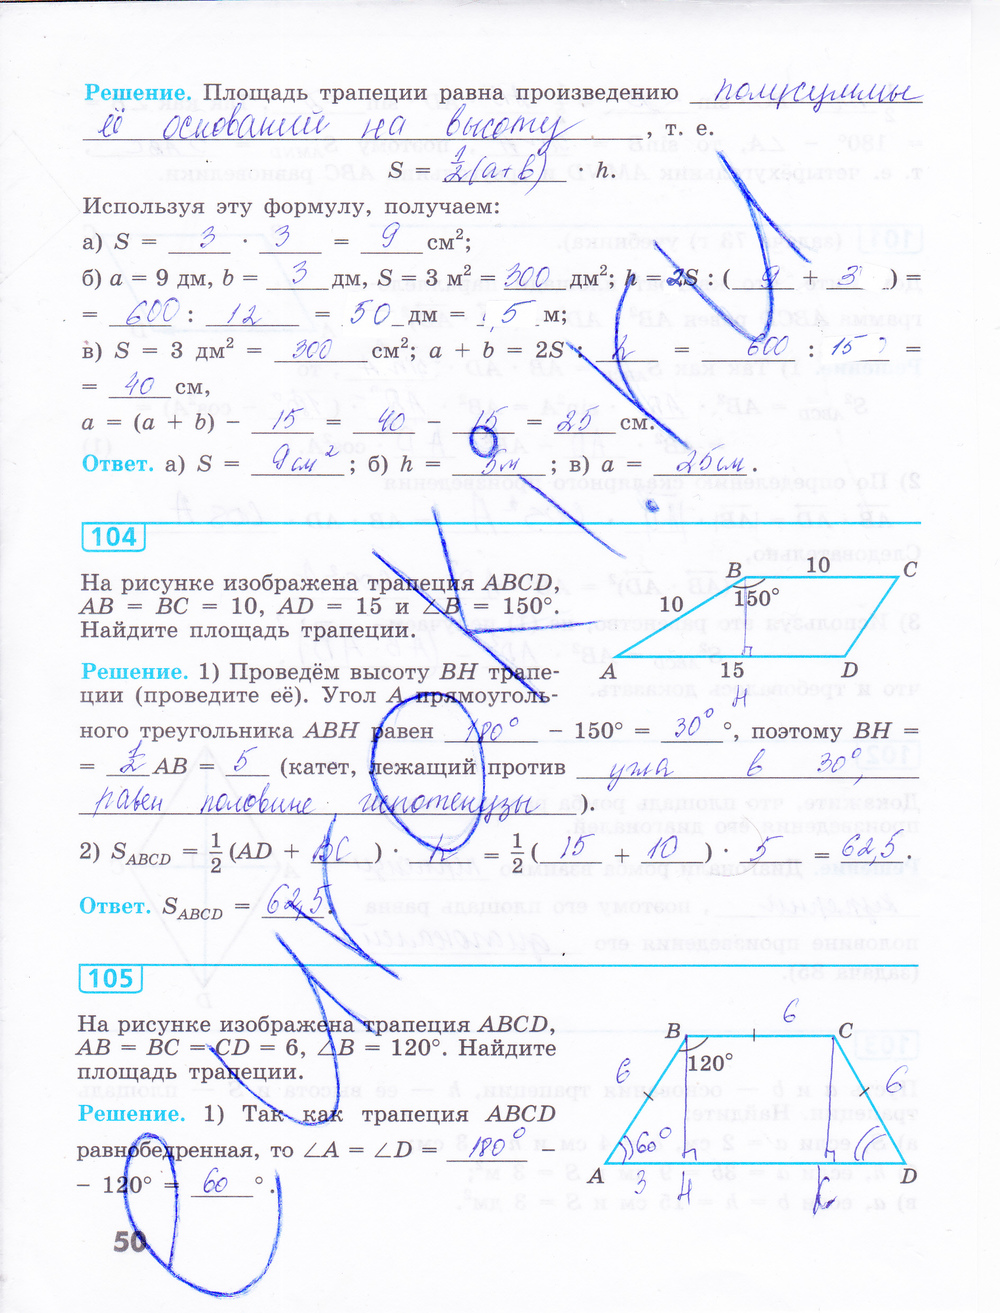 Решение. Площадь трапеции равна произведению полусуммы
её оснований на высоту, т. е.
S = 1/2(a+b) · h.
Используя эту формулу, получаем:
а) S = 3 · 3 = 9 см²;
б) a = 9 дм, b = 3 дм, S = 3 м² = 300 дм²; h = 2S : ( 9 + 3 ) =
= 600 : 12 = 50 дм = 1,5 м;
в) S = 3 дм² = 300 см²; a + b = 2S : h = 600 : 15 =
= 40 см,
a = (a + b) − 15 = 40 − 15 = 25 см.
Ответ. а) S = 9см²; б) h = 5м; в) a = 25см.
104
На рисунке изображена трапеция ABCD,
AB = BC = 10, AD = 15 и ∠B = 150°.
Найдите площадь трапеции.
B 10 C
10 150°
A 15 D
H
Решение. 1) Проведём высоту BH трапе-
ции (проведите её). Угол A прямоуголь-
ного треугольника ABH равен 180° − 150° = 30° °, поэтому BH =
= 1/2 AB 5 (катет, лежащий против угла в 30°,
равен половине гипотенузы ).
2) S ABCD = 1/2 (AD + BC ) · h = 1/2 ( 15 + 10 ) · 5 = 62,5.
Ответ. S ABCD = 62,5.
105
На рисунке изображена трапеция ABCD,
AB = BC = CD = 6, ∠B = 120°. Найдите
площадь трапеции.
6
B C
120°
6 6
60°
A 3 H K D
Решение. 1) Так как трапеция ABCD
равнобедренная, то ∠A = ∠D = 180° −
− 120° = 60 °.
50